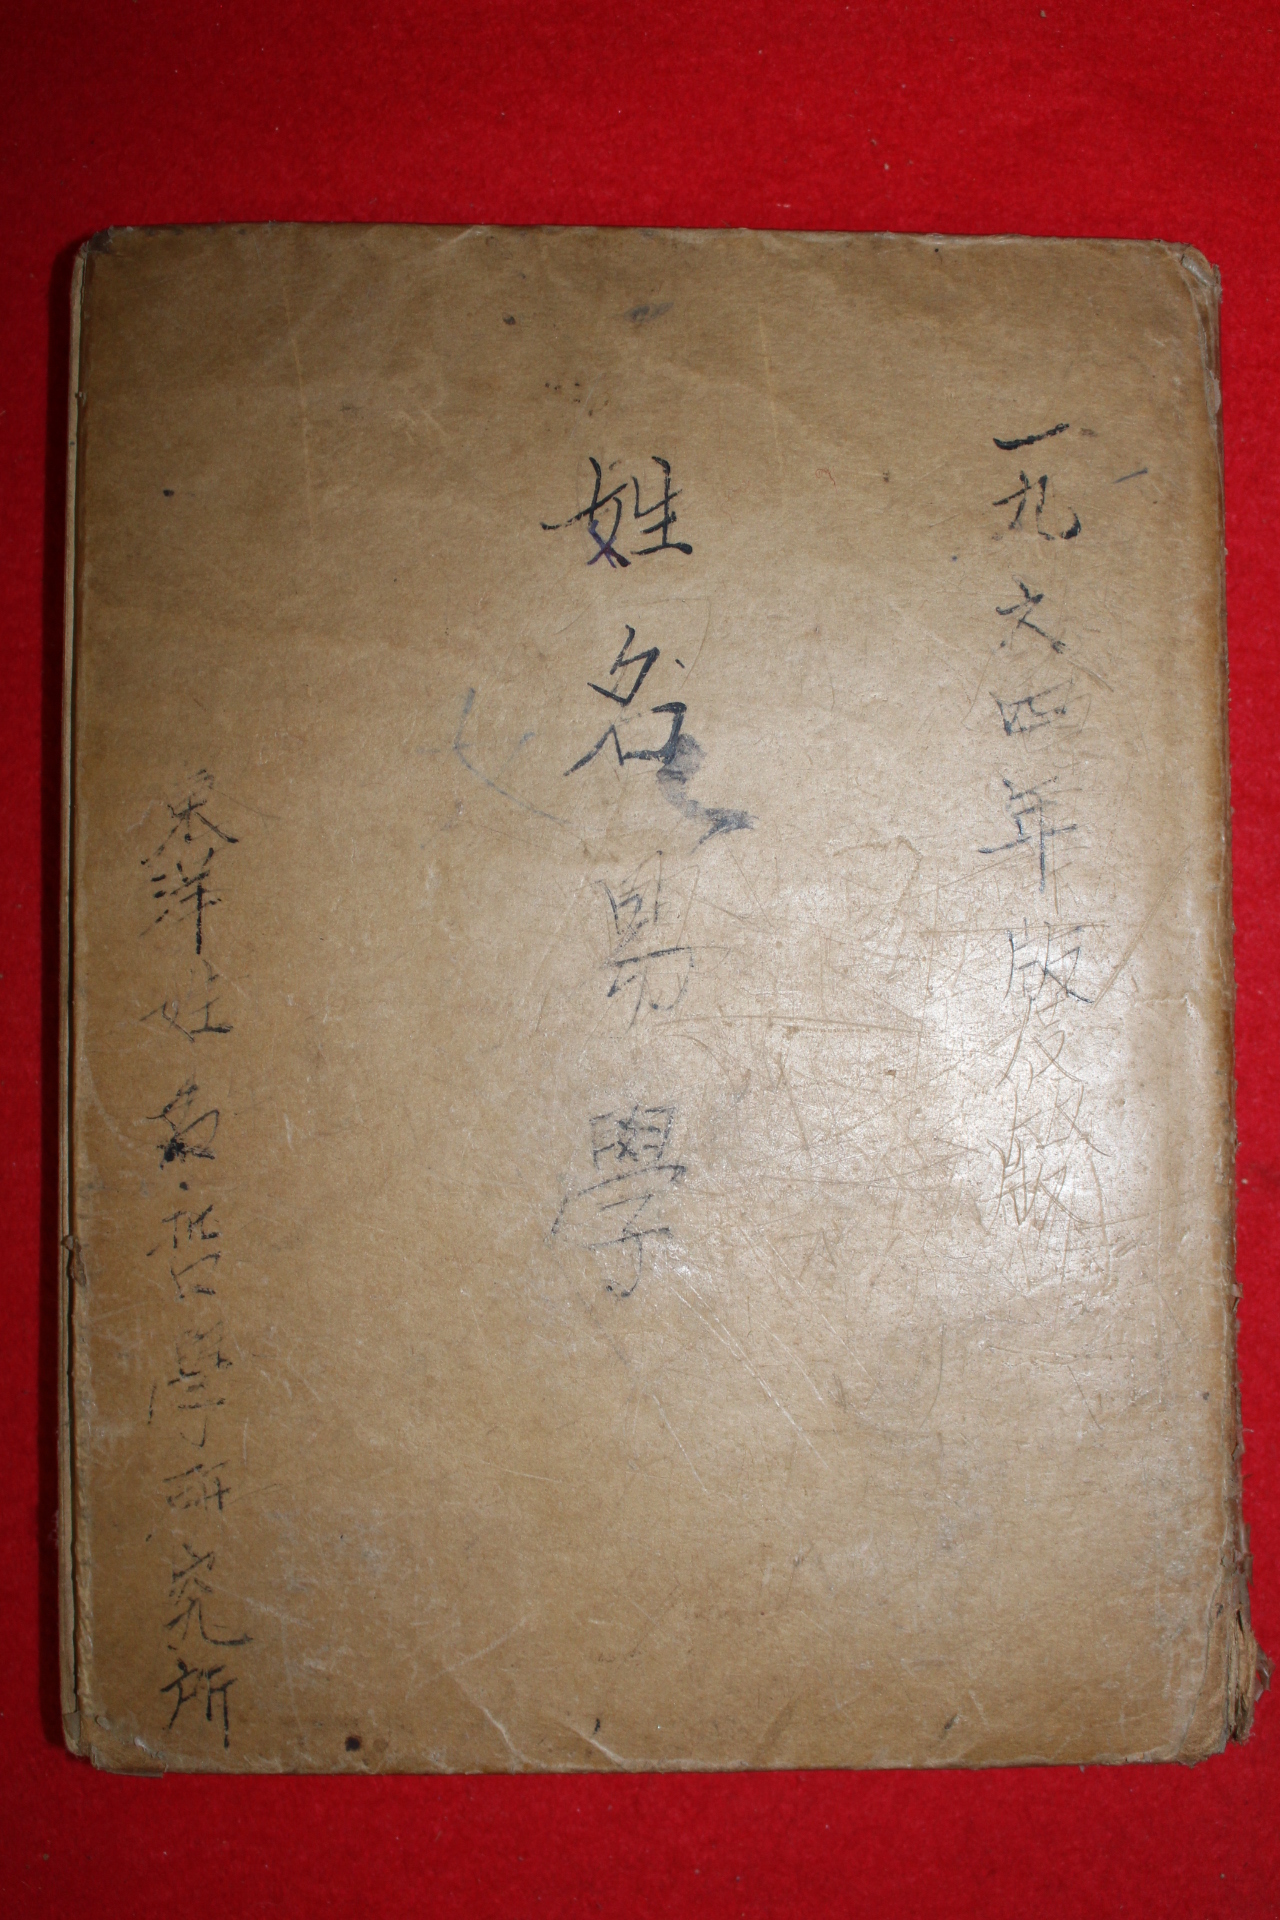 一九六四年版
姓名易學
洋姓名哲學研究所